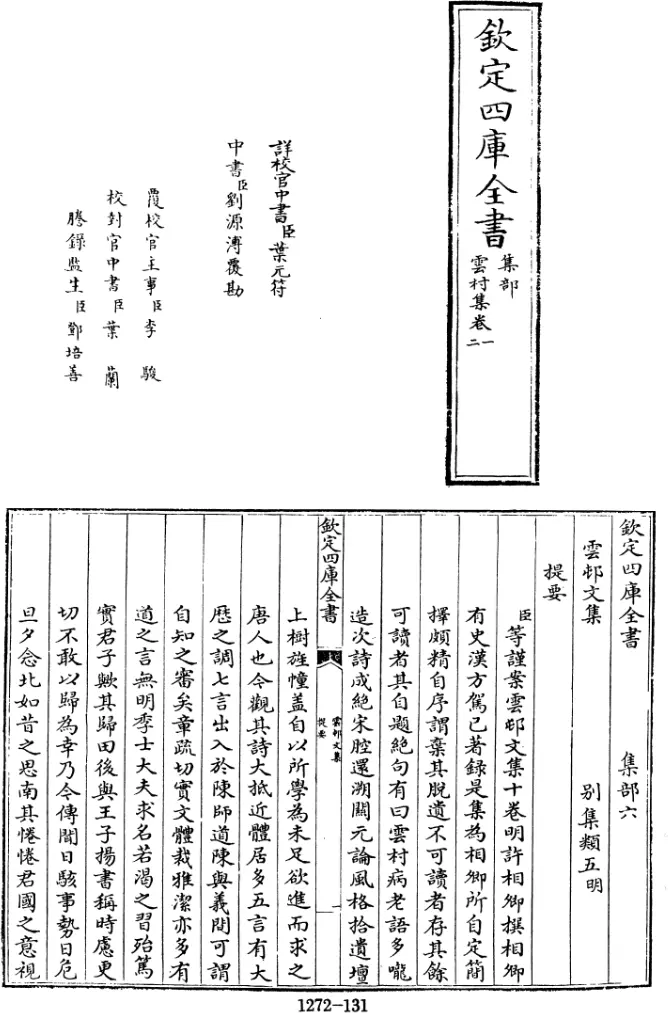 欽定四庫全書
集部
雲村集卷一
二
詳校官中書臣葉元符
中書臣劉源溥覆勘
覆校官主事臣李駿
校對官中書臣葉蘭
謄錄監生臣鄭培善
欽定四庫全書 集部六
雲邨文集 別集類五明
提要
臣等謹案雲邨文集十卷明許相卿撰相卿
有史漢方駕已著錄是集為相卿所自定簡
擇頗精自序謂棄其脫遺不可讀者存其餘
可讀者其自題絕句有曰雲村病老語多嚨
造次詩成絕宋腔還溯開元論風格拾遺壇
欽定四庫全書
雲邨文集
提要
一
上樹旌幢蓋自以所學為未足欲進而求之
唐人也今觀其詩大抵近體居多五言有大
厯之調七言出入於陳師道陳與義間可謂
自知之審矣章疏切實文體裁雅潔亦多有
道之言無明季士大夫求名若渴之習殆篤
實君子歟其歸田後與王子揚書稱時慮更
切不敢以歸為幸乃今傳聞日駭事勢日危
旦夕念北如昔之思南其惓惓君國之意視
1272-131